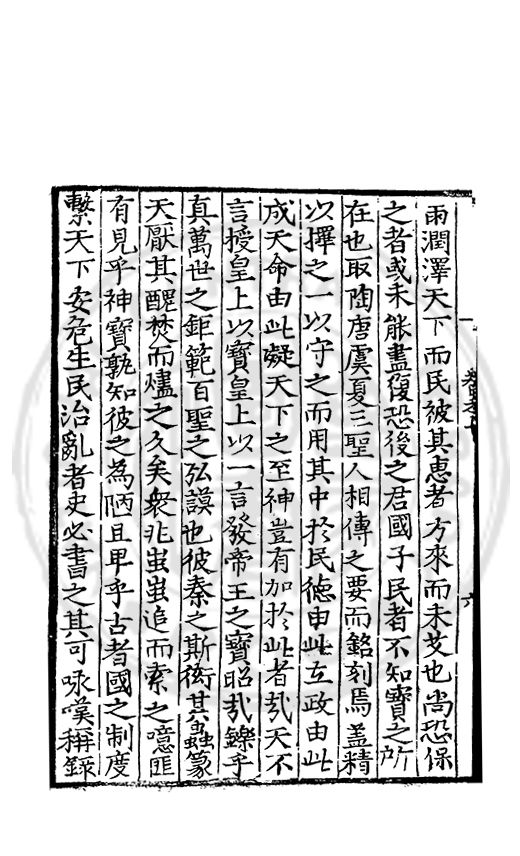 雨潤澤天下而民被其惠者方來而未艾也尚恐保
之者或未能盡復恐後之君國子民者不知寶之所
在也取陶唐虞夏三聖人相傳之要而銘刻焉蓋精
以擇之一以守之而用其中於民德由此立政由此
成天命由此凝天下之至神豈有加於此者哉天不
言授皇上以寶皇上以一言發帝王之寶昭哉鑠乎
真萬世之鉅範百聖之弘謨也彼秦之斯衒其蟲篆
天厭其醜焚而燼之久矣衆非蚩蚩追而索之噫匪
有見乎神寶孰知彼之為陋且卑乎古者國之制度
繫天下安危生民治亂者史必書之其可咏嘆稱錄
六